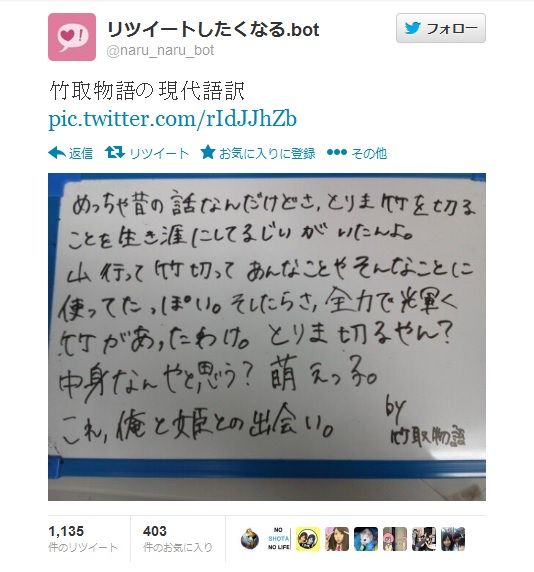 リツイートしたくなる.bot
@naru_naru_bot
フォロー
竹取物語の現代語訳
pic.twitter.com/rIdJJhZb
返信 リツイート お気に入りに登録 その他
めっちゃ昔の話なんだけどさ,とりま竹を切る
ことを生き涯にしてるじいがいたんよ。
山行って竹切ってあんなことやそんなことに
使ってたっぽい。そしたらさ,全力で光輝く
竹があったわけ。とりま切るやん?
中身なんやと思う?萌えっ子。
これ,俺と姫との出会い。
by
竹取物語
1,135
件のリツイート
403
件のお気に入り
NO
SHOTA
NO LIFE